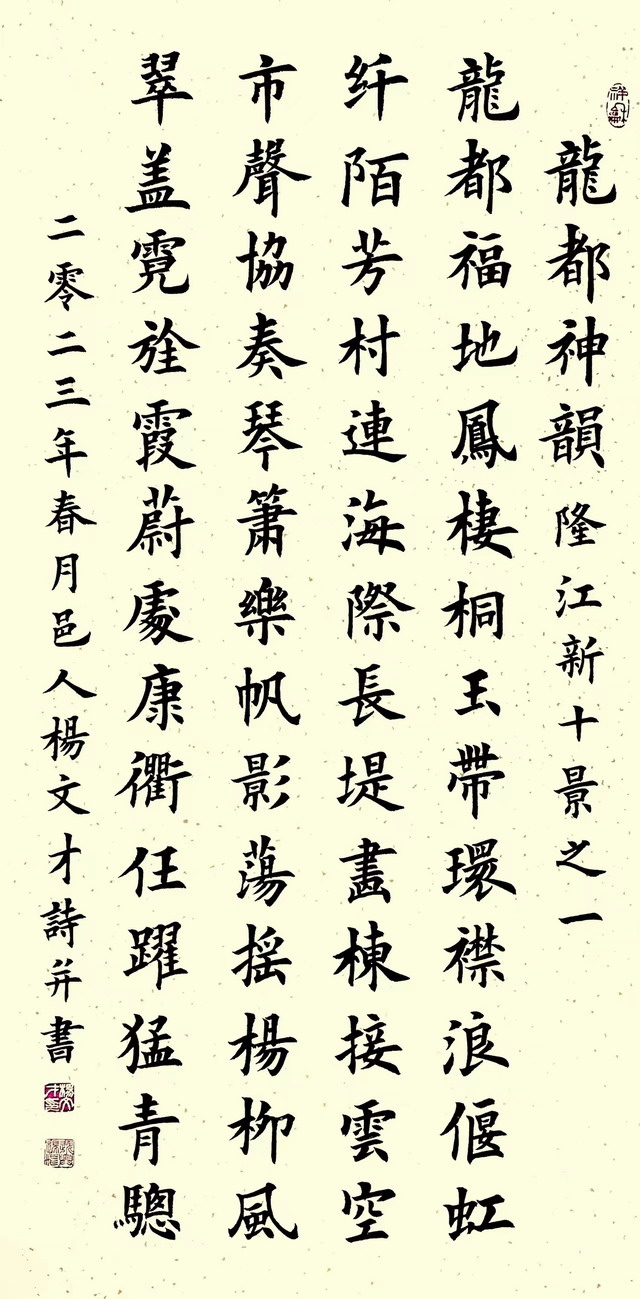 龍都神韻隆江新十景之一
龍都福地鳳棲桐玉帶環襟浪偃虹
纤陌芳村連海際長堤畫棟接雲空
市聲協奏琴簫樂帆影蕩摇楊柳風
翠盖霓旌霞蔚處康衢任躍猛青驄
二零二三年春月邑人楊文才詩并書